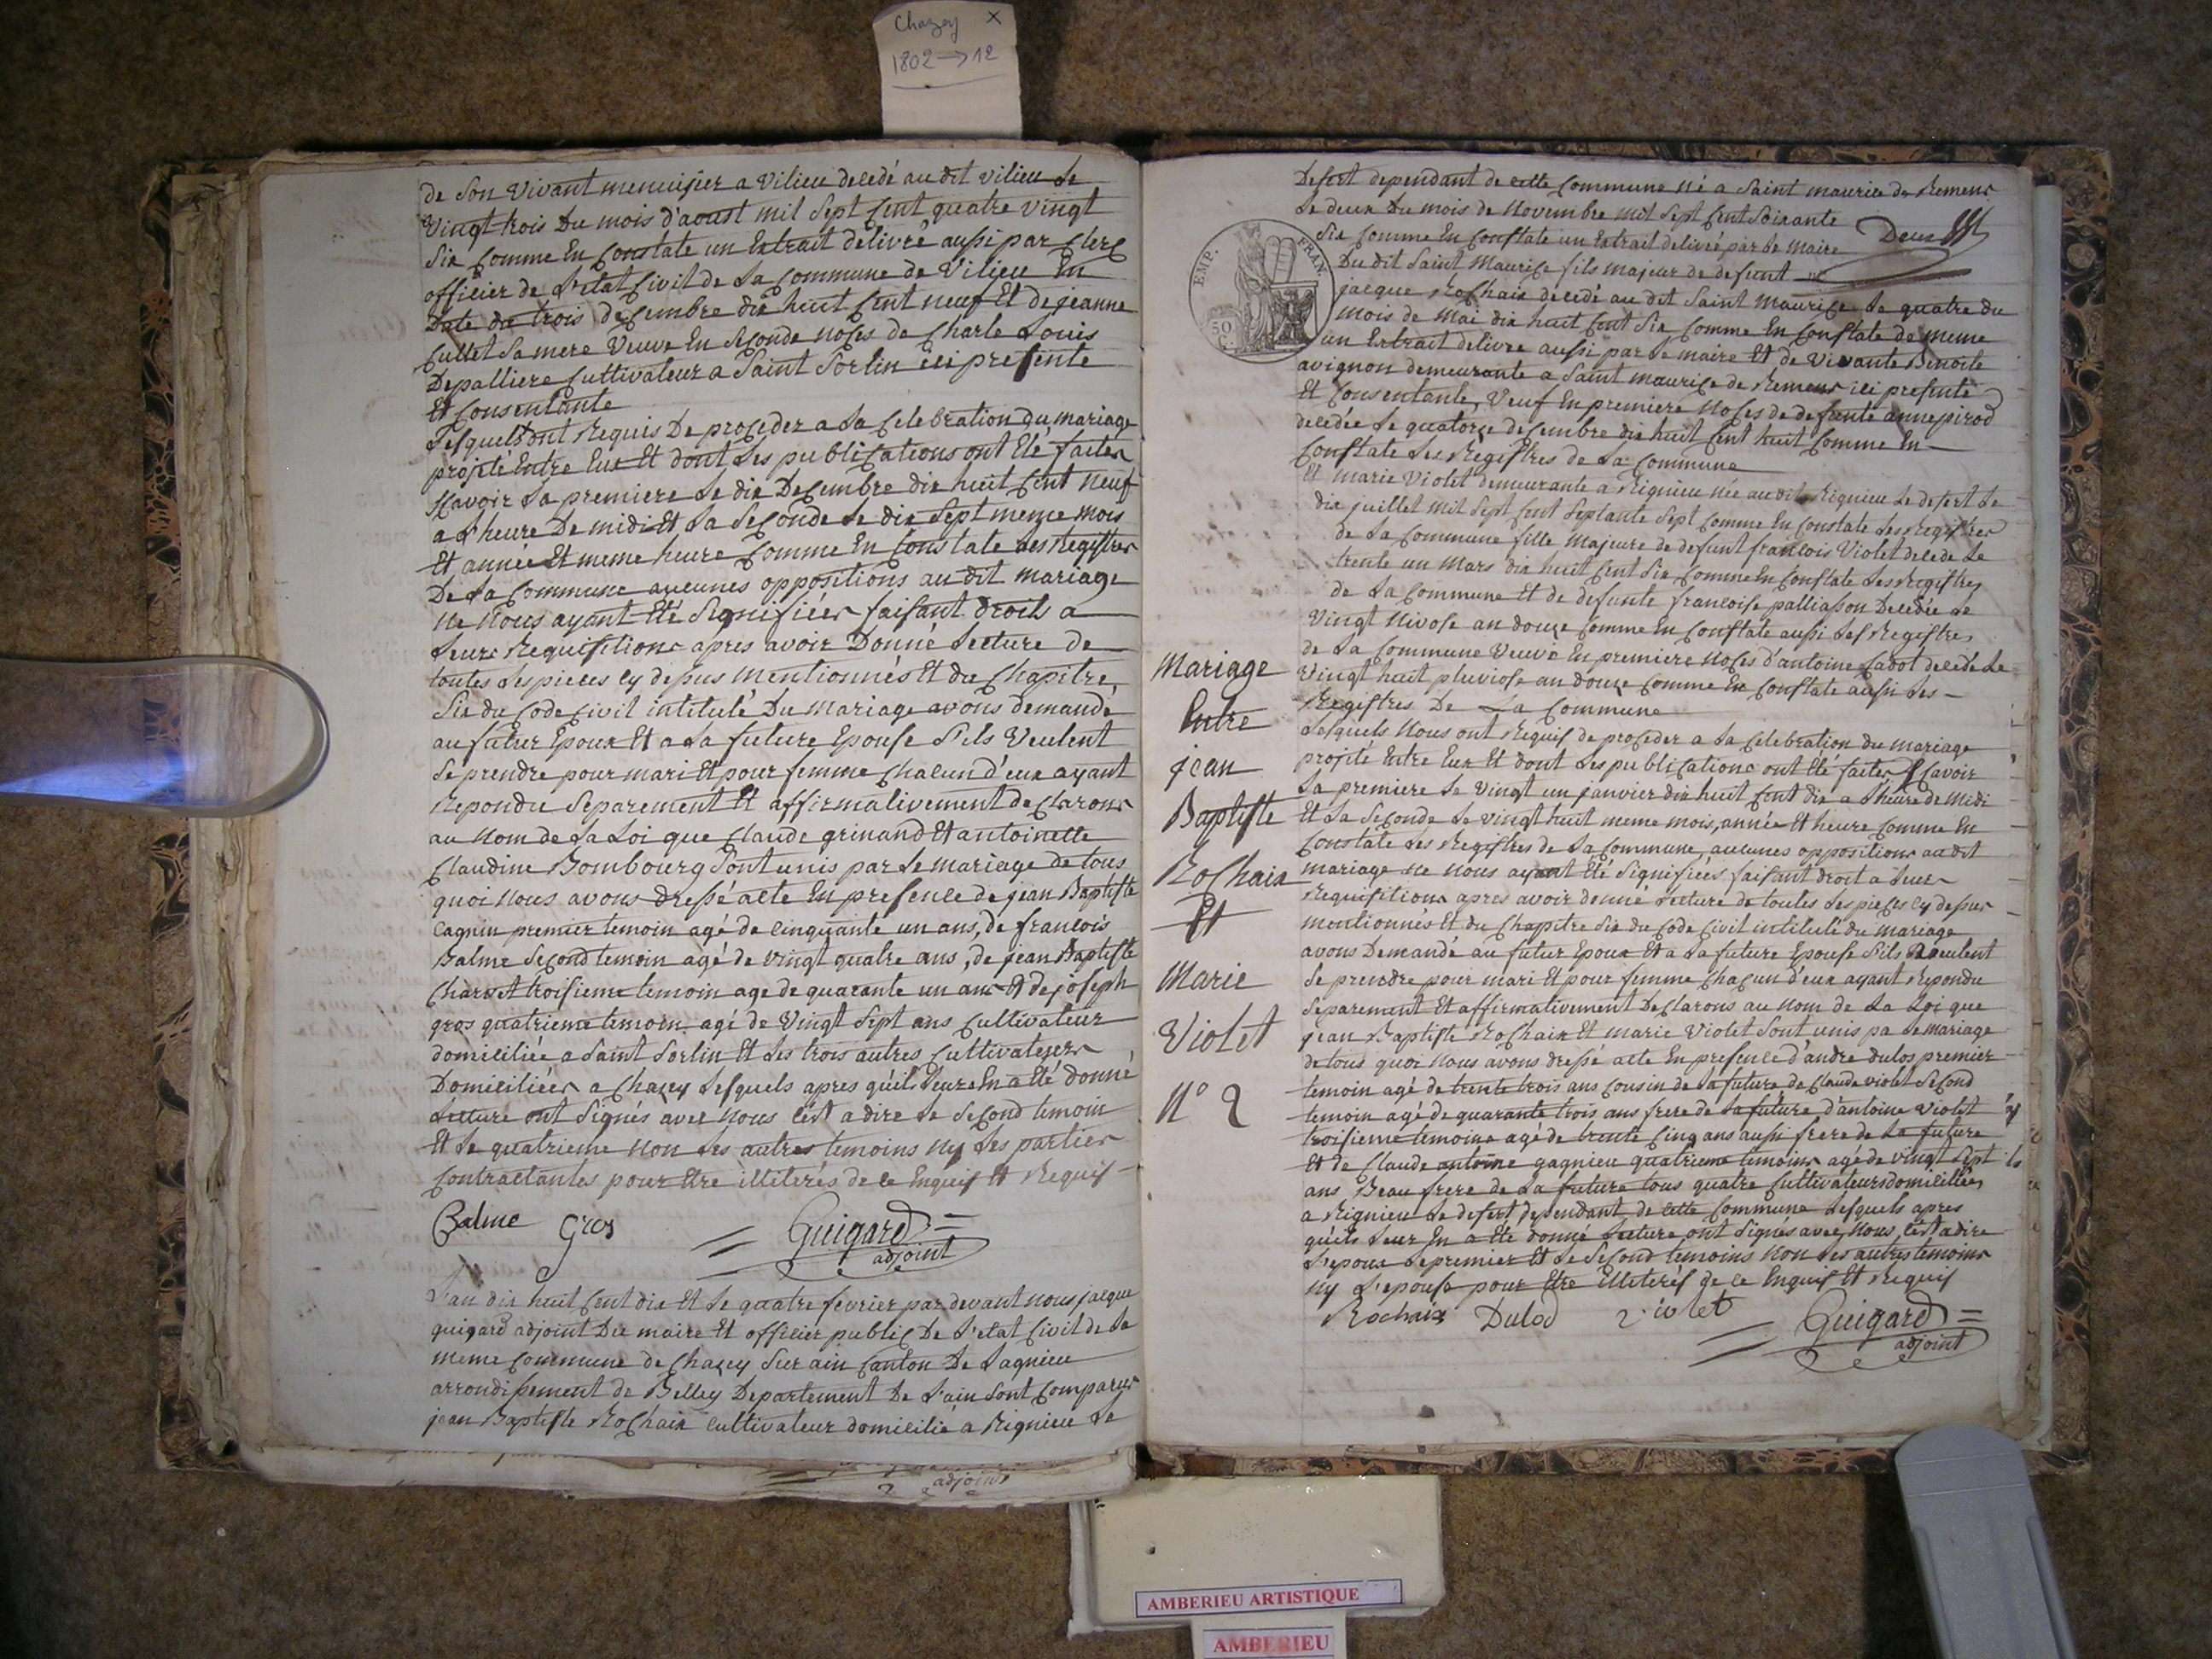 Chazey X
1802 → 12
de Son Vivant menuisier a Vilieu decedé au dit vilieu Le
Vingt trois Du mois d'aoust mil Sept Cent quatre vingt
Six Comme En Constate un Extrait delivré aussi par Clerc
officier de L'etat Civil de La Commune de Vilieu En
Date du trois decembre dix huit Cent neuf Et de jeanne
Cullet Sa mere Veuve En Seconde noces de Charle Louis
Depalliere Cultivateur a Saint Sorlin ici presente
Et Consentante
Lesquels ont Requis De proceder a La Celebration du mariage
projeté Entre Eux Et dont Les publications ont Eté faites
Scavoir La premiere Le dix Decembre dix huit Cent neuf
a L'heure De midi Et La Seconde Le dix Sept meme mois
Et année Et meme heure Comme En Constate Les Registres
De La Commune aucunes oppositions au dit mariage
Ne Nous ayant Eté Signifiées faisant droits a
Leurs Requisitions apres avoir Donné Lecture de
toutes Les pieces Cy dessus mentionnés Et du Chapitre
Six du Code Civil intitulé Du mariage avons demandé
au futur Epoux Et a La future Epouse S'ils Veulent
Se prendre pour mari Et pour femme Chacun d'eux ayant
Repondu Separement Et affirmativement declarons
au Nom de La Loi que Claude grinand Et antoinette
Claudine Bombourg Sont unis par Le mariage de tous
quoi Nous avons dressé acte En presence de jean Baptiste
Cagnin premier temoin agé de Cinquante un ans, de francois
Balme Second temoin agé de vingt quatre ans, de jean Baptiste
Charvet troisieme temoin age de quarante un ans Et de joseph
gros quatrieme temoin agé de Vingt Sept ans Cultivateur
domiciliée a Saint Sorlin Et Les trois autres Cultivateurs
Domiciliées a Chazey Lesquels apres qu'il Leurs En a Eté donné
Lecture ont Signés avec Nous C'est a dire Le Second temoin
Et Le quatrieme Non Les autres temoins Ny Les parties
Contractantes pour Etre illiterés de Ce Enquis Et Requis
Balme Gros Guigard
adjoint
L'an dix huit Cent dix Et Le quatre fevrier par devant nous jacque
guigard adjoint Du maire Et officier public De L'etat Civil de La
meme Commune de Chazey Sur ain Canton De Lagnieu
arrondissement de Belley Departement De L'ain Sont Comparus
jean Baptiste Rochaix Cultivateur domicilié a Rignieu Le
adjoint
EMP. FRAN.
50
C.
Desert dependant de Cette Commune Né a Saint maurice de Remens
Le deux Du mois de Novembre mil Sept Cent Soixante
Six Comme En Constate un Extrait delivré par Le maire
Deux
Du dit Saint Maurice fils majeur de defunt
jacque Rochaix decedé au dit Saint Maurice Le quatre du
mois de Mai dix huit Cent Six Comme En Constate de meme
un Extrait delivre aussi par Le maire Et de Vivante Benoite
avignon demeurante a Saint maurice de Remens ici presente
Et Consentante, Veuf En premiere Noces de defunte anne pirod
decedée Le quatorze decembre dix huit Cent huit Comme En
Constate Les Registres de La Commune
Et marie Violet demeurante a Rignieu née au dit Rignieu Le desert Le
dix juillet mil Sept Cent Septante Sept Comme En Constate Les Registres
de La Commune fille Majeure de defunt francois Violet decede Le
trente un Mars dix huit Cent Six Comme En Constate Les Registres
de La Commune Et de defunte francoise palliasson Decedée Le
Vingt Nivose an douze Comme En Constate aussi Les Registres
de La Commune Veuve En premiere Noces d'antoine Cadot decedé Le
Vingt huit pluviose an douze Comme En Constate aussi Les
Registres De La Commune
Lesquels Nous ont Requis de proceder a La Celebration du mariage
projeté Entre Eux Et dont Les publications ont Eté faites Scavoir
La premiere Le Vingt un janvier dix huit Cent dix a L'heure de Midi
Et La Seconde Le vingt huit meme mois, année Et heure Comme En
Constate Les Registres de La Commune, aucunes oppositions au dit
mariage Ne Nous ayant Eté Signifiées faisant droit a Leurs
Requisitions apres avoir donné Lecture de toutes Les pieces Cy dessus
mentionnés Et du Chapitre Six du Code Civil intitulé du mariage
avons Demandé au futur Epoux Et a La future Epouse S'ils Veulent
Se prendre pour mari Et pour femme Chacun d'eux ayant Repondu
Separement Et affirmativement Declarons au Nom de La Loi que
jean Baptiste Rochaix Et marie Violet Sont unis pa Le mariage
de tous quoi Nous avons dressé acte En presence d'andré dulos premier
temoin agé de trente trois ans Cousin de La future de Claude violet Second
temoin agé de quarante trois ans frere de La future, d'antoine violet
troisieme temoins agé de trente Cinq ans aussi frere de La future
Et de Claude antoine gagnieu quatrieme temoins agé de vingt Sept
ans Beau frere de La future tous quatre Cultivateurs domiciliées
a Rignieu Le desert dependant de Cette Commune Lesquels apres
qu'ils Leur En a Eté donné Lecture ont Signés avec Nous, C'est a dire
L'epoux Le premier Et Le Second temoins Non Les autres temoins
Ny L'epouse pour Etre illiterés de Ce Enquis Et Requis
Rochaix Dulos violet Guigard
adjoint
Mariage
Entre
jean
Baptiste
Rochaix
Et
Marie
Violet
N° 2
AMBERIEU ARTISTIQUE
AMBERIEU